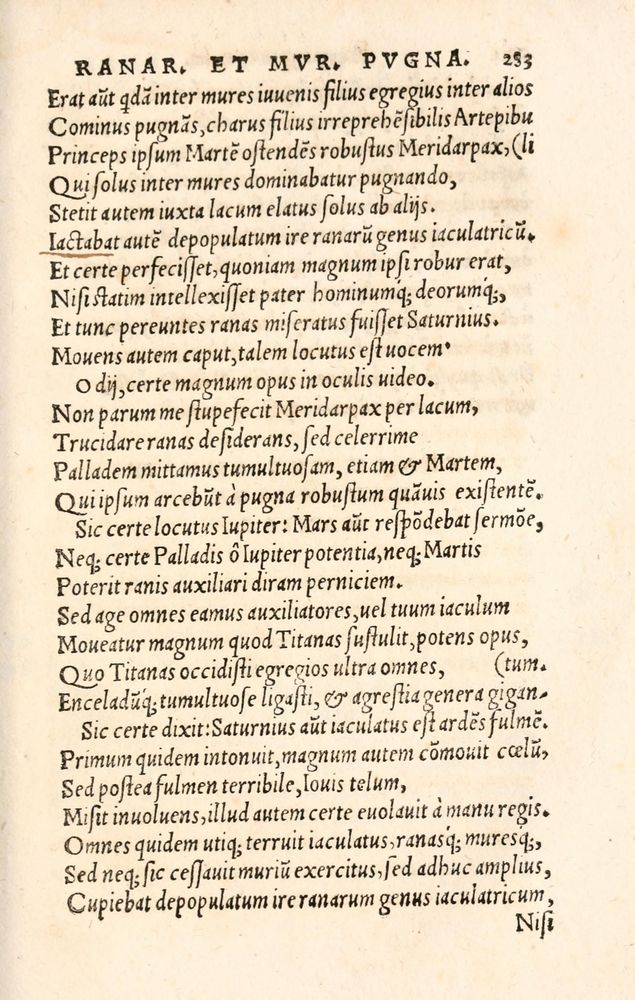 RANAR. ET MVR. PVGNA. 283
Erat aūt qdā inter mures iuuenis filius egregius inter alios
Cominus pugnās, charus filius irreprehēsibilis Artepibu
Princeps ipsum Martē ostendēs robustus Meridarpax, (li
Qui solus inter mures dominabatur pugnando,
Stetit autem iuxta lacum elatus solus ab alijs.
Iactabat autē depopulatum ire ranarū genus iaculatricū.
Et certe perfecisset, quoniam magnum ipsi robur erat,
Nisi statim intellexisset pater hominumq́; deorumq́;,
Et tunc pereuntes ranas miseratus fuisset Saturnius.
Mouens autem caput, talem locutus est uocem.
O dij, certe magnum opus in oculis uideo.
Non parum me stupefecit Meridarpax per lacum,
Trucidare ranas desiderans, sed celerrime
Palladem mittamus tumultuosam, etiam & Martem,
Qui ipsum arcebūt à pugna robustum quāuis existentē.
Sic certe locutus Iupiter: Mars aūt respōdebat sermōe,
Neq; certe Palladis ô Iupiter potentia, neq; Martis
Poterit ranis auxiliari diram perniciem.
Sed age omnes eamus auxiliatores, uel tuum iaculum
Moueatur magnum quod Titanas sustulit, potens opus,
Quo Titanas occidisti egregios ultra omnes, (tum.
Enceladūq́; tumultuose ligasti, & agrestia genera gigan-
Sic certe dixit: Saturnius aūt iaculatus est ardēs fulmē.
Primum quidem intonuit, magnum autem cōmouit cœlū,
Sed postea fulmen terribile, Iouis telum,
Misit inuoluens, illud autem certe euolauit à manu regis.
Omnes quidem utiq; terruit iaculatus, ranasq́; muresq́;,
Sed neq; sic cessauit muriū exercitus, sed adhuc amplius,
Cupiebat depopulatum ire ranarum genus iaculatricum,
Nisi